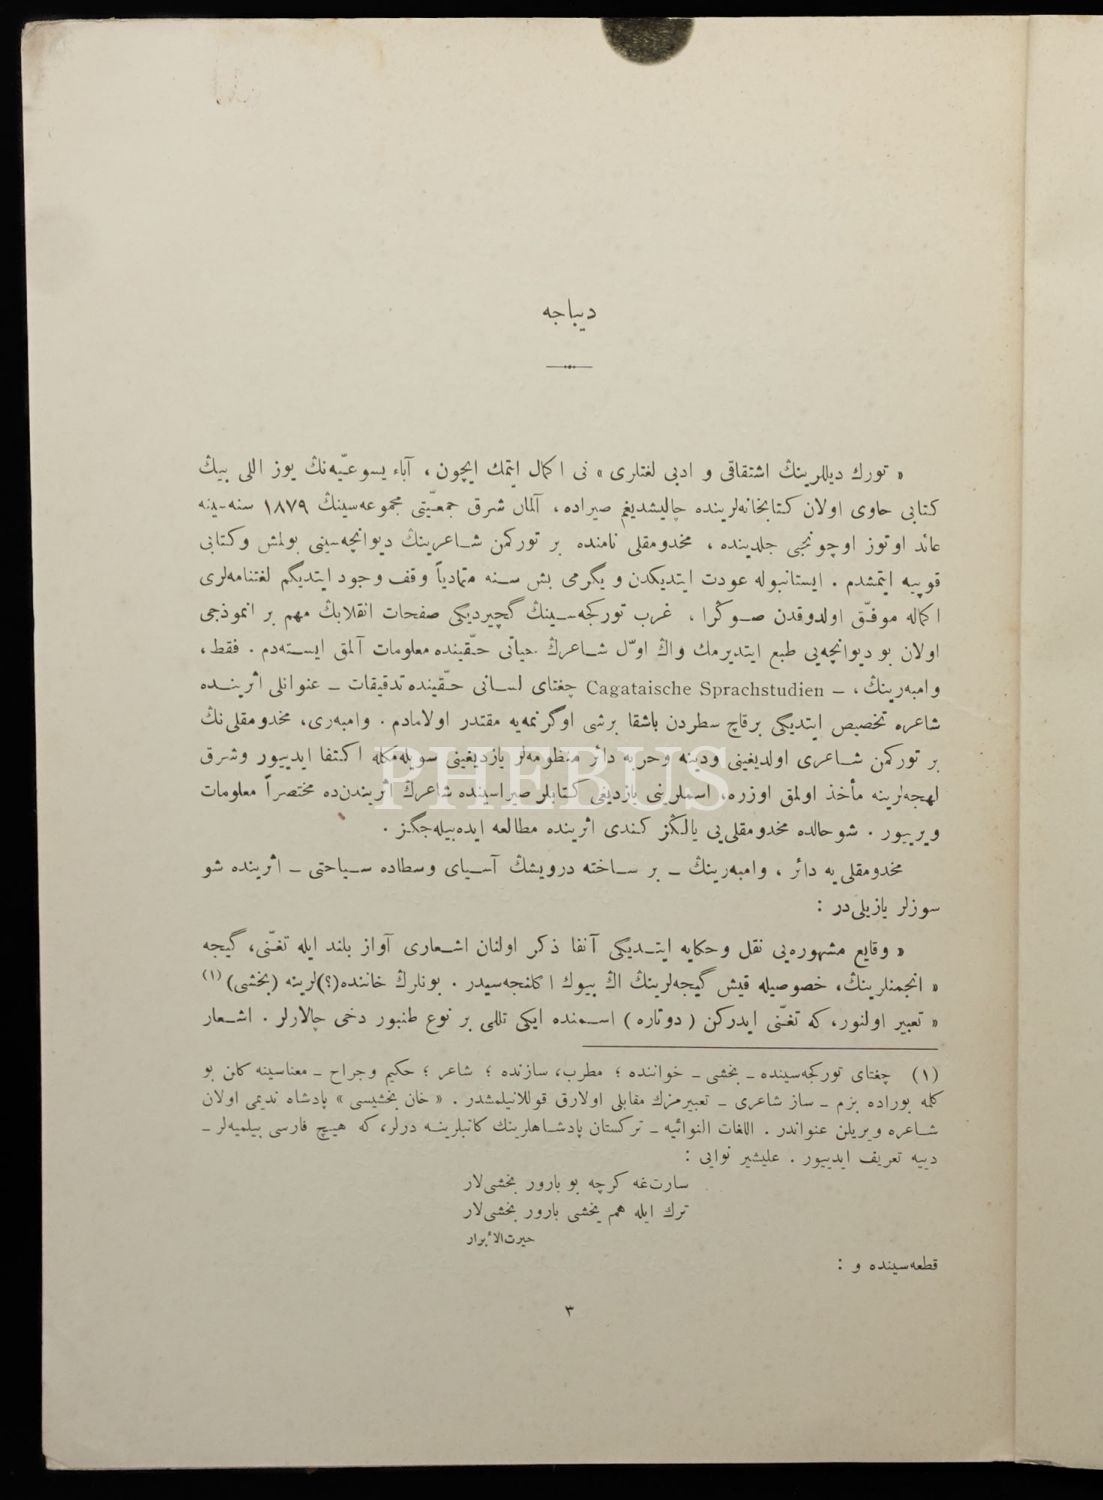 ديباجه
« تورك ديللرينڭ اشتقاقی و ادبی لغتلری » نی اكمال ايتمك ايچون ، آباء يسوعيّه‌نڭ يوز اللی بيڭ
كتابی حاوی اولان كتابخانه‌لرينده چاليشديغم صيراده ، آلمان شرق جمعيّتی مجموعه‌سينڭ ١٨٧٩ سنه‌سينه
عائد اوتوز اوچونجی جلدينده ، مخدومقلی نامنده بر توركمن شاعرينڭ ديوانچه‌سينی بولمش وكتابی
قوپيه ايتمشدم . ايستانبوله عودت ايتديكدن و يگرمی بش سنه متمادياً وقف وجود ايتديگم لغتنامه‌لری
اكماله موفّق اولدوقدن صوڭرا ، غرب توركجه‌سينڭ گچيرديگی صفحات انقلابڭ مهم بر انموذجی
اولان بو ديوانچه‌يی طبع ايتديرمك واڭ اوّل شاعرڭ حياتی حقّينده معلومات آلمق ايسته‌دم . فقط ،
وامبه‌رينڭ ، ـ Cagataische Sprachstudien چغتای لسانی حقّينده تدقيقات ـ عنوانلی اثرينده
شاعره تخصيص ايتديگی برقاچ سطردن باشقا برشی اوگرنمه‌يه مقتدر اولامادم . وامبه‌ری، مخدومقلی‌نڭ
بر توركمن شاعری اولديغينی ودينه وحربه دائر منظومه‌لر يازديغينی سويله‌مكله اكتفا ايدييور وشرق
لهجه‌لرينه مأخذ اولمق اوزره، اسملرينی يازديغی كتابلر صيراسينده شاعرڭ اثريندن‌ده مختصراً معلومات
ويرييور . شوحالده مخدومقلی‌يی يالڭز كندی اثرينده مطالعه ايده‌بيله‌جگز .
مخدومقلی‌يه دائر ، وامبه‌رينڭ ـ بر ساخته درويشڭ آسيای وسطاده سياحتی ـ اثرينده شو
سوزلر يازيلی‌در :
« وقايع مشهوره‌يی نقل وحكايه ايتديگی آنفا ذكر اولنان اشعاری آواز بلند ايله تغنّی، گيجه
« انجمنلرينڭ، خصوصيله قيش گيجه‌لرينڭ اڭ بيوك اكلنجه‌سيدر . بونلرڭ خاننده(؟)لرينه (بخشی) (١)
« تعبير اولنور، كه تغنّی ايدركن ( دوتاره ) اسمنده ايكی تللی بر نوع طنبور دخی چالارلر . اشعار
(١) چغتای توركجه‌سينده ـ بخشی ـ خواننده ؛ مطرب، سازنده ؛ شاعر ؛ حكيم وجراح ـ معناسينه كلن بو
كلمه بوراده بزم ـ ساز شاعری ـ تعبيرمزك مقابلی اولارق قوللانيلمشدر . « خان بخشيسی » پادشاه نديمی اولان
شاعره ويريلن عنواندر . اللغات النوائيه ـ تركستان پادشاهلرينك كاتبلرينه درلر، كه هيچ فارسی بيلميه‌لر ـ
دييه تعريف ايدييور . عليشير نوايی :
سارت‌غه كرچه بو بارور بخشی‌لار
ترك ايله هم يخشی بارور بخشی‌لار
حيرت‌الأبرار
قطعه‌سينده و :
٣
PHEBUS